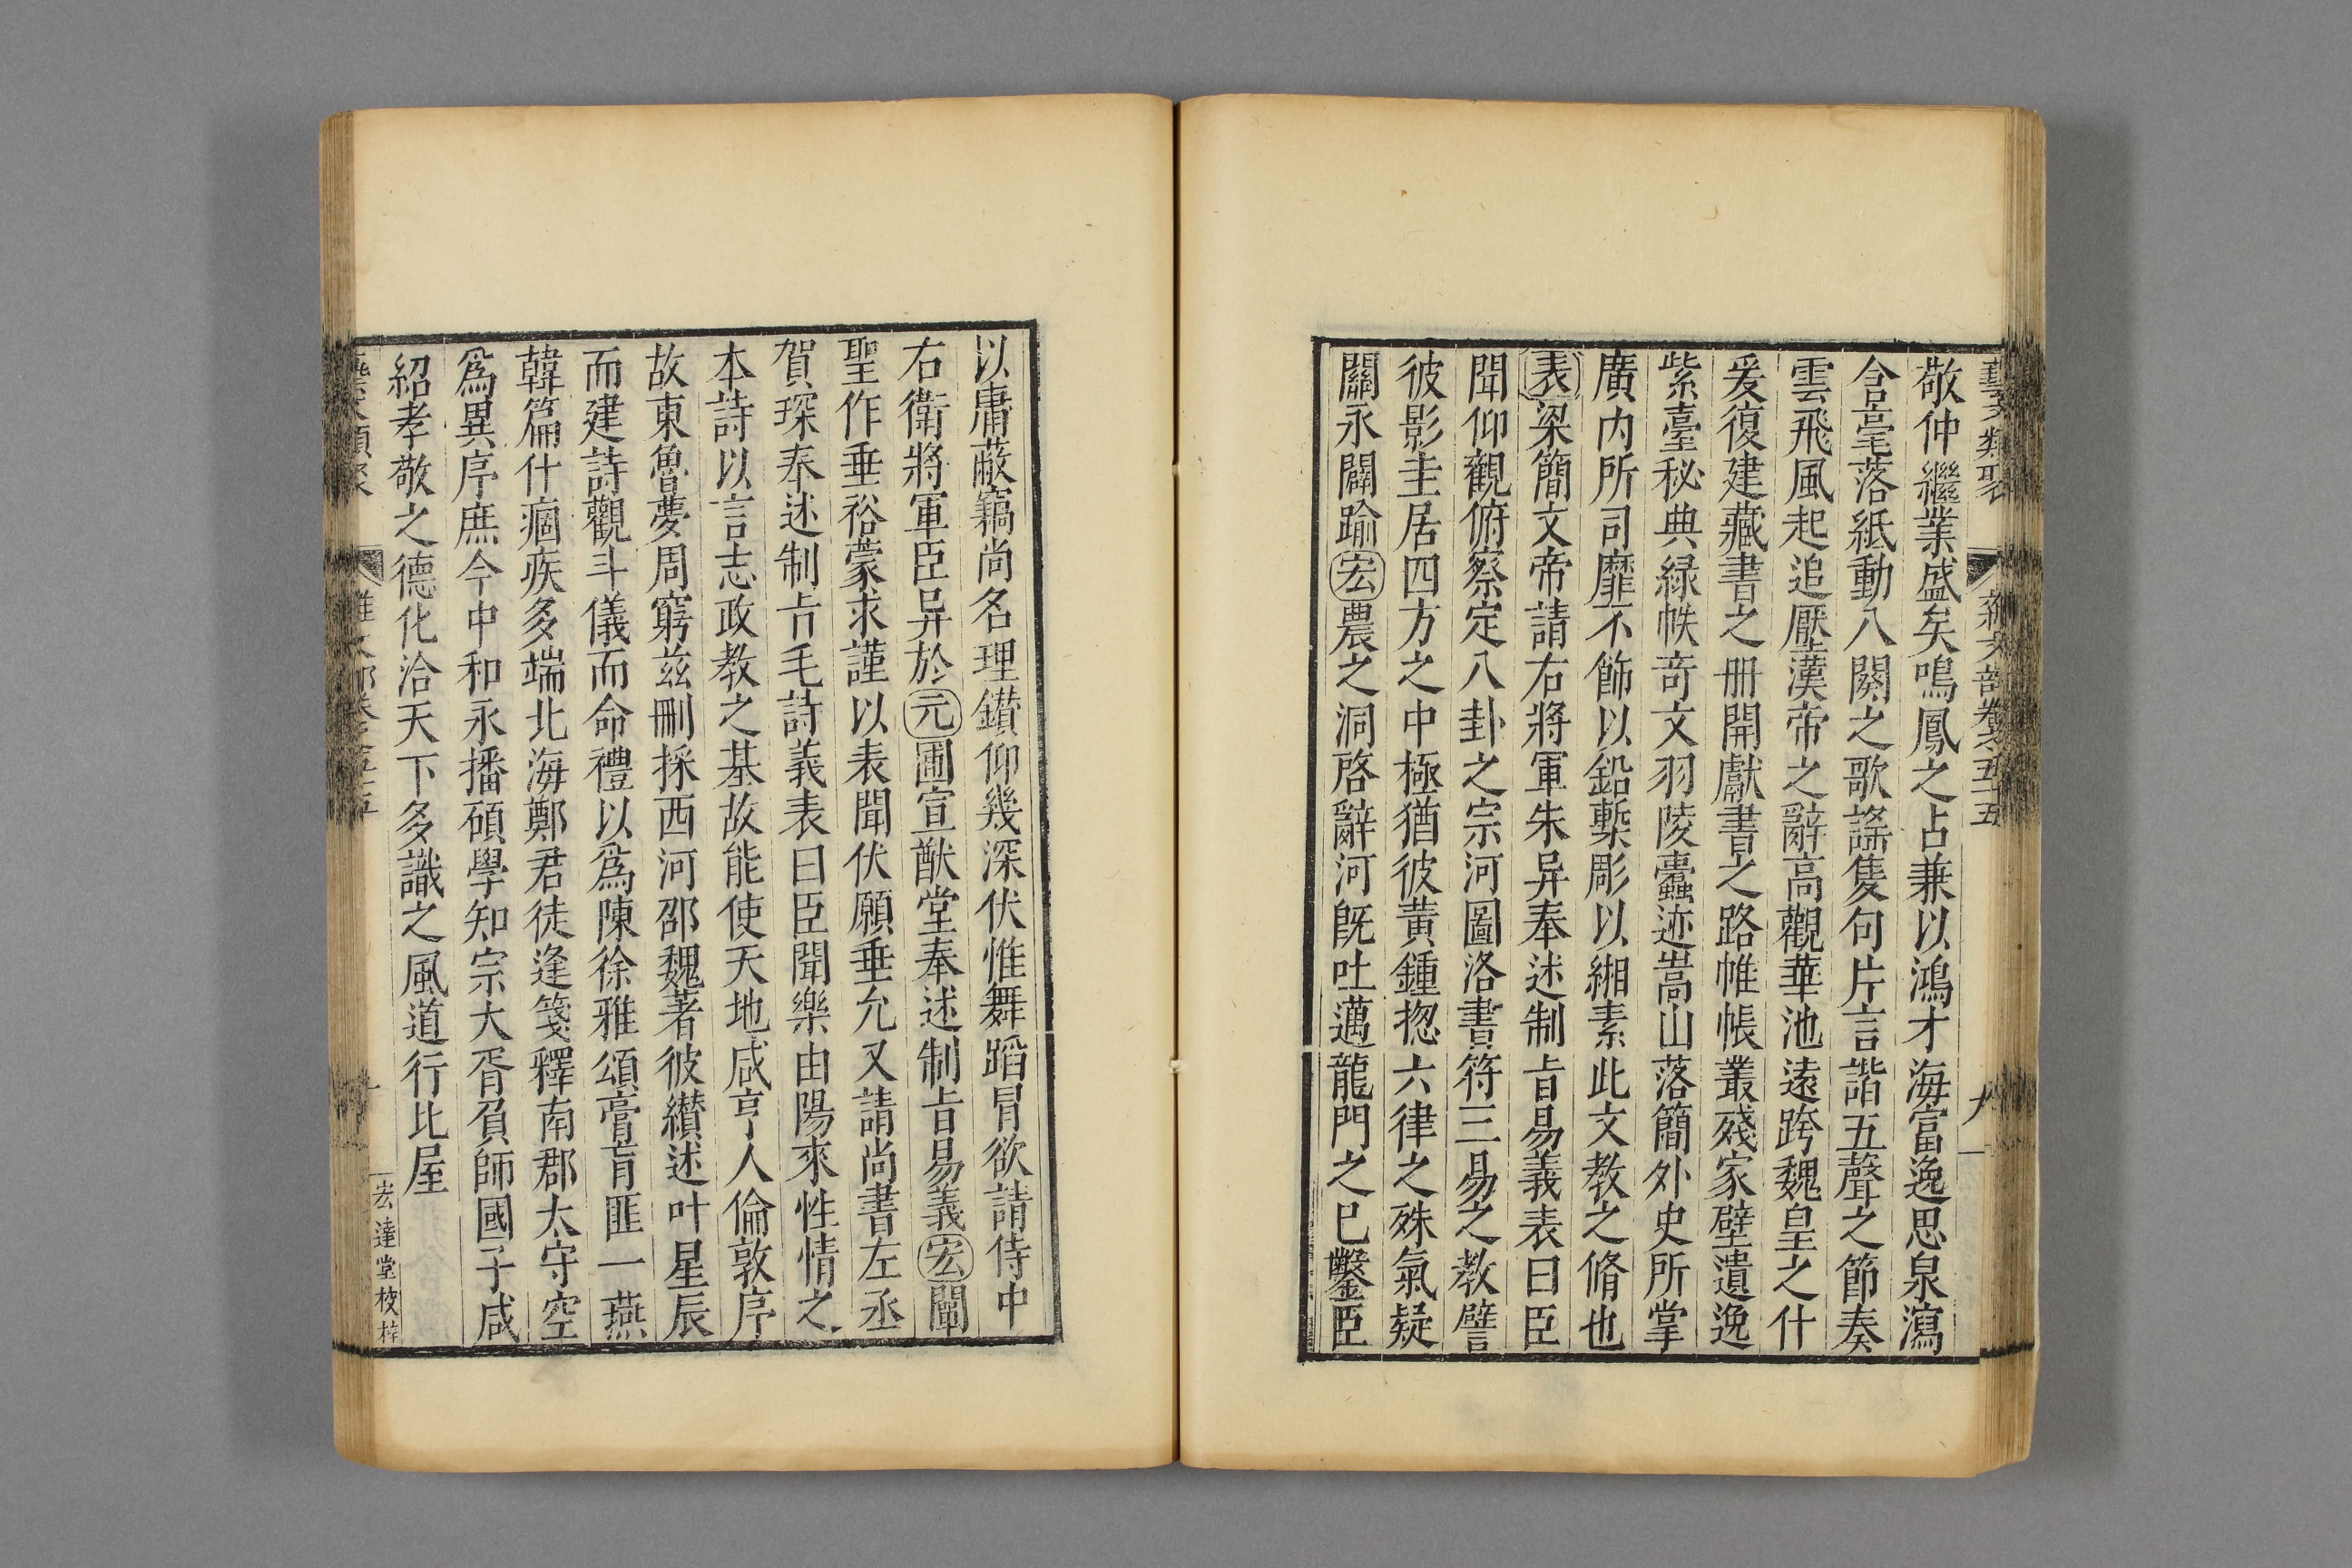 敬仲繼業盛矣鳴鳳之占兼以鴻才海富逸思泉瀉
含毫落紙動八闋之歌謠隻句片言諧五聲之節奏
雲飛風起追壓漢帝之辭高觀華池遠跨魏皇之什
爰復建藏書之冊開獻書之路帷帳叢殘家壁遺逸
紫臺秘典緑帙竒文羽陵蠹迹嵩山落簡外史所掌
廣内所司靡不飾以鉛槧彫以緗素此文教之脩也
表梁簡文帝請右將軍朱异奉述制旨易義表曰臣
聞仰觀俯察定八卦之宗河圖洛書符三易之教譬
彼影圭居四方之中極猶彼黃鍾揔六律之殊氣疑
關永闢踰宏農之洞啓辭河旣吐邁龍門之巳鑿臣
以庸蔽竊尚名理鑚仰幾深伏惟舞蹈冒欲請侍中
右衛將軍臣异於元圃宣猷堂奉述制旨易義宏闡
聖作垂裕蒙求謹以表聞伏願垂允又請尚書左丞
賀琛奉述制旨毛詩義表曰臣聞樂由陽來性情之
本詩以言志政教之基故能使天地咸亨人倫敦序
故東魯夢周窮茲刪採西河邵魏著彼纘述叶星辰
而建詩觀斗儀而命禮以爲陳徐雅頌膏肓匪一燕
韓篇什痼疾多端北海鄭君徒逢箋釋南郡太守空
爲異序庶今中和永播碩學知宗大胥負師國子咸
紹孝敬之德化洽天下多識之風道行比屋
宏達堂校梓